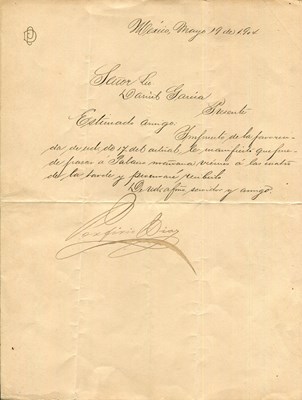 México, Mayo 19 de 1904
Señor Lic
Daniel García
Presente
Estimado amigo
Impuesto de la favoreci-
da de ud. de 17 del actual, le manifiesto que pue-
de pasar a Palacio mañana viernes á las cuatro
de la tarde y procuraré recibirlo
De ud afmo servidor y amigo
Porfirio Diaz